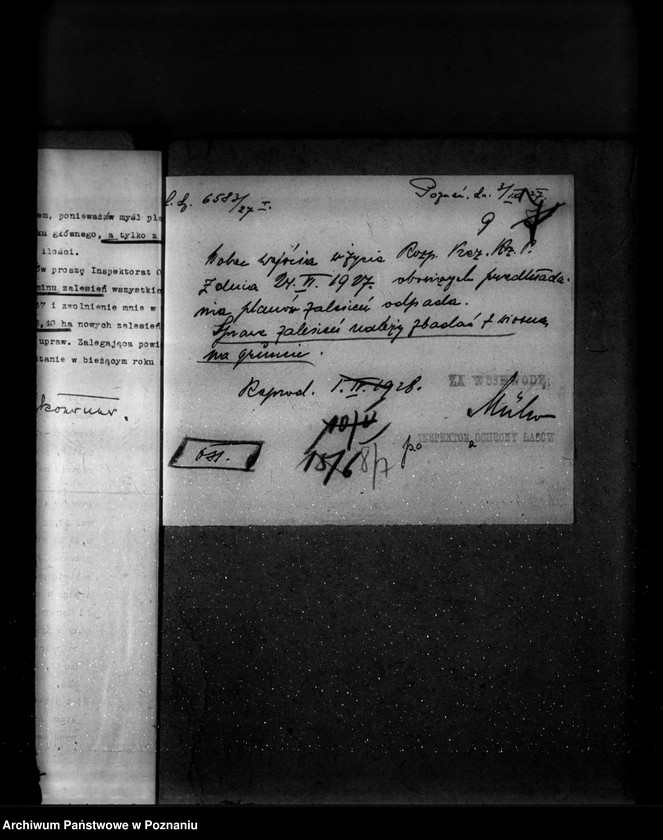 em, ponieważ w myśl pl
ku głównego, a tylko z
ilości.
ów proszę Inspektorat O
minu zalesień wszystkic
7 i zwolnienie mnie w
10 ha nowych zalesień
upraw. Zalegająca powi
tanie w bieżącym roku
L. dz. 6583/27 I.
Poznań, dn.
9
Wobec wejścia w życie Rozp. Prez. Rz. P.
z dnia 24. VI. 1927. obowiązek przedkłada-
nia planów zalesień odpada.
Sprawę zalesień należy zbadać z wiosną
na gruncie.
Reprod. 1. IV. 1928.
ZA WOJEWODĘ
10/V
INSPEKTOR OCHRONY LASÓW
15/6 8/7
Archiwum Państwowe w Poznaniu